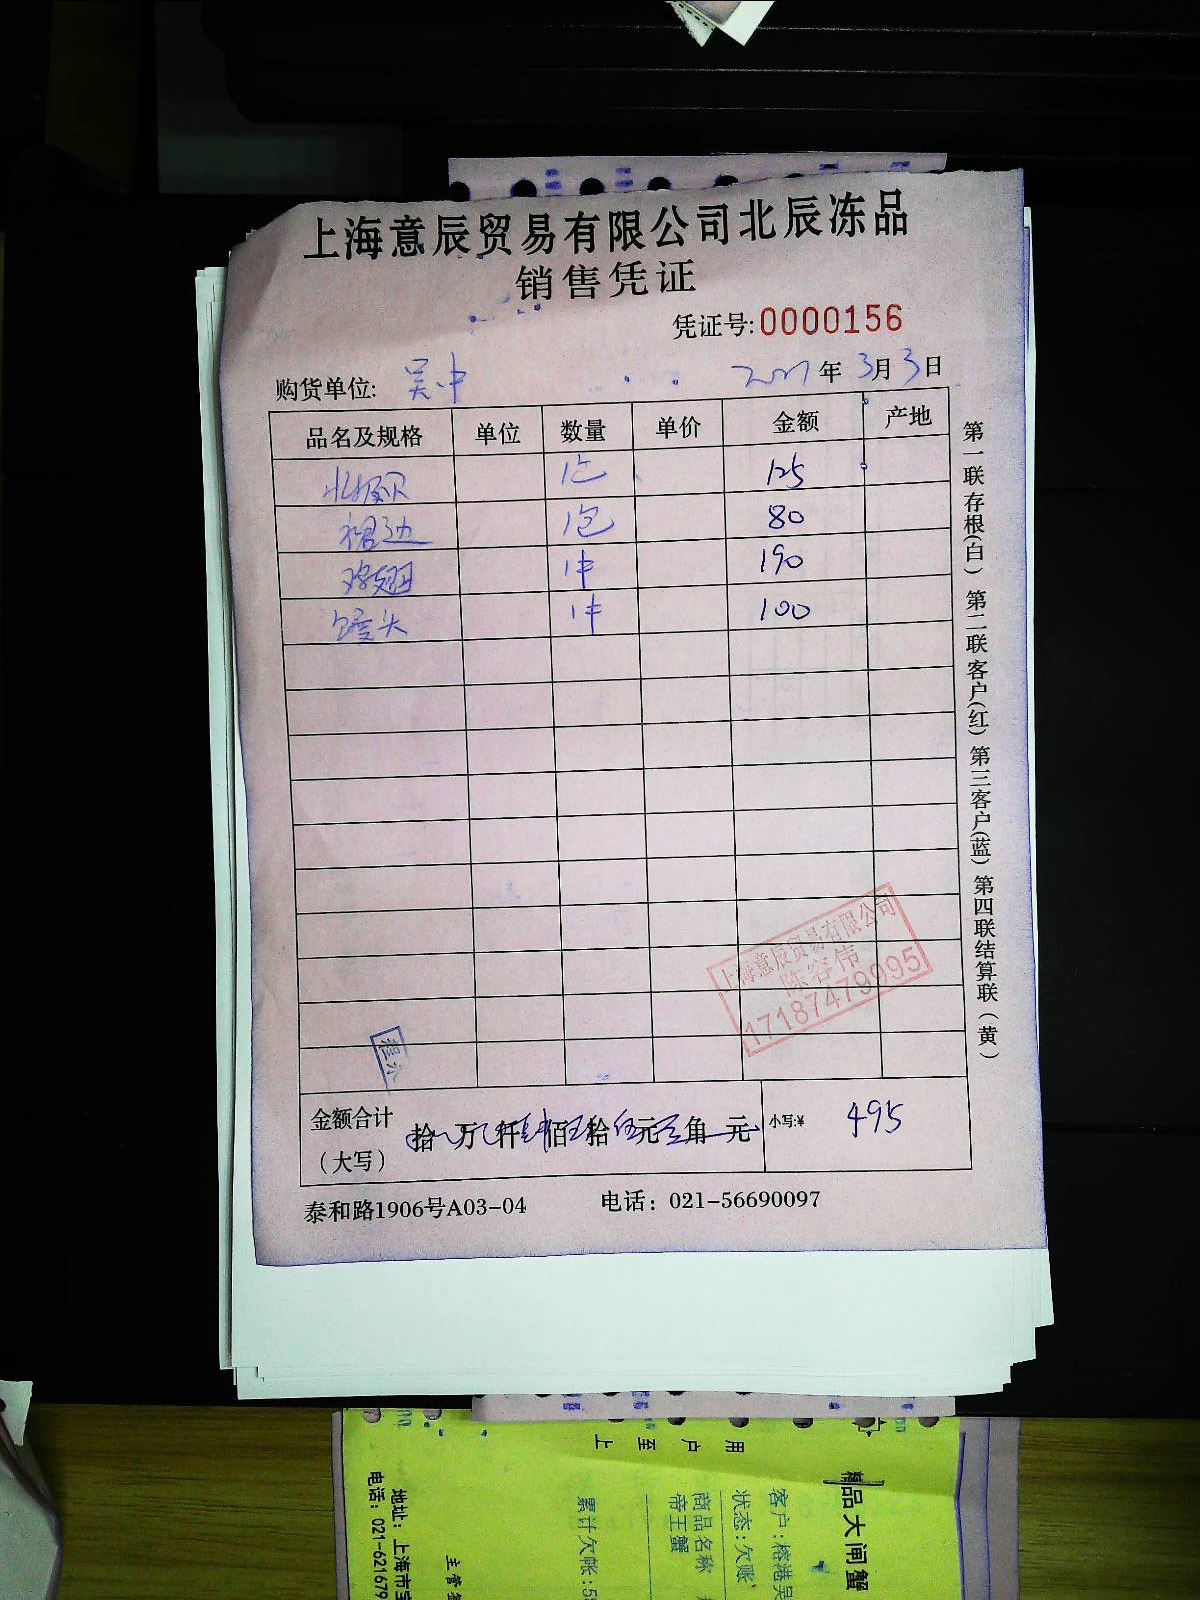 上海意辰贸易有限公司北辰冻品
销售凭证
凭证号:0000156
购货单位: 吴中 年 3月3日
品名及规格 单位 数量 单价 金额 产地
北极贝 1包 125
裙边 1包 80
鸡翅 1件 190
馒头 1件 100
第一联存根(白) 第二联客户(红) 第三客户(蓝) 第四联结算联(黄)
上海意辰贸易有限公司
陈容伟
17187479995
金额合计
(大写) 拾 万 仟 佰 拾 元 角 元 小写:¥ 495
泰和路1906号A03-04 电话: 021-56690097
用户至上
精品大闸蟹
客户:榕港吴
状态:欠账
商品名称
帝王蟹
累计欠帐:5
主管
地址:上海市宝
电话:021-621679